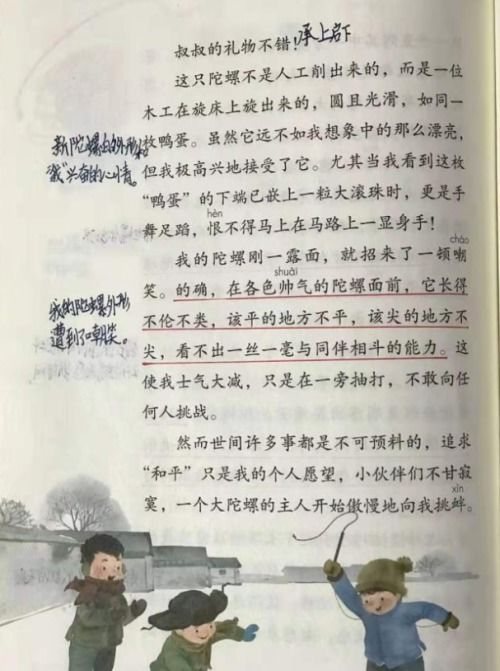 叔叔的礼物不错!承上启下
这只陀螺不是人工削出来的,而是一位
木工在旋床上旋出来的,圆且光滑,如同一
枚鸭蛋。虽然它远不如我想象中的那么漂亮,
但我极高兴地接受了它。尤其当我看到这枚
“鸭蛋”的下端已嵌上一粒大滚珠时,更是手
hèn
舞足蹈,恨不得马上在马路上一显身手!
cháo
我的陀螺刚一露面,就招来了一顿嘲
shuài
笑。的确,在各色帅气的陀螺面前,它长得
不伦不类,该平的地方不平,该尖的地方不
尖,看不出一丝一毫与同伴相斗的能力。这
使我士气大减,只是在一旁抽打,不敢向任
何人挑战。
然而世间许多事都是不可预料的,追求
“和平”只是我的个人愿望,小伙伴们不甘寂
xìn
寞,一个大陀螺的主人开始傲慢地向我挑衅。
新陀螺的外形和
“我”兴奋的心情。
我的陀螺外形
遭到了嘲笑。